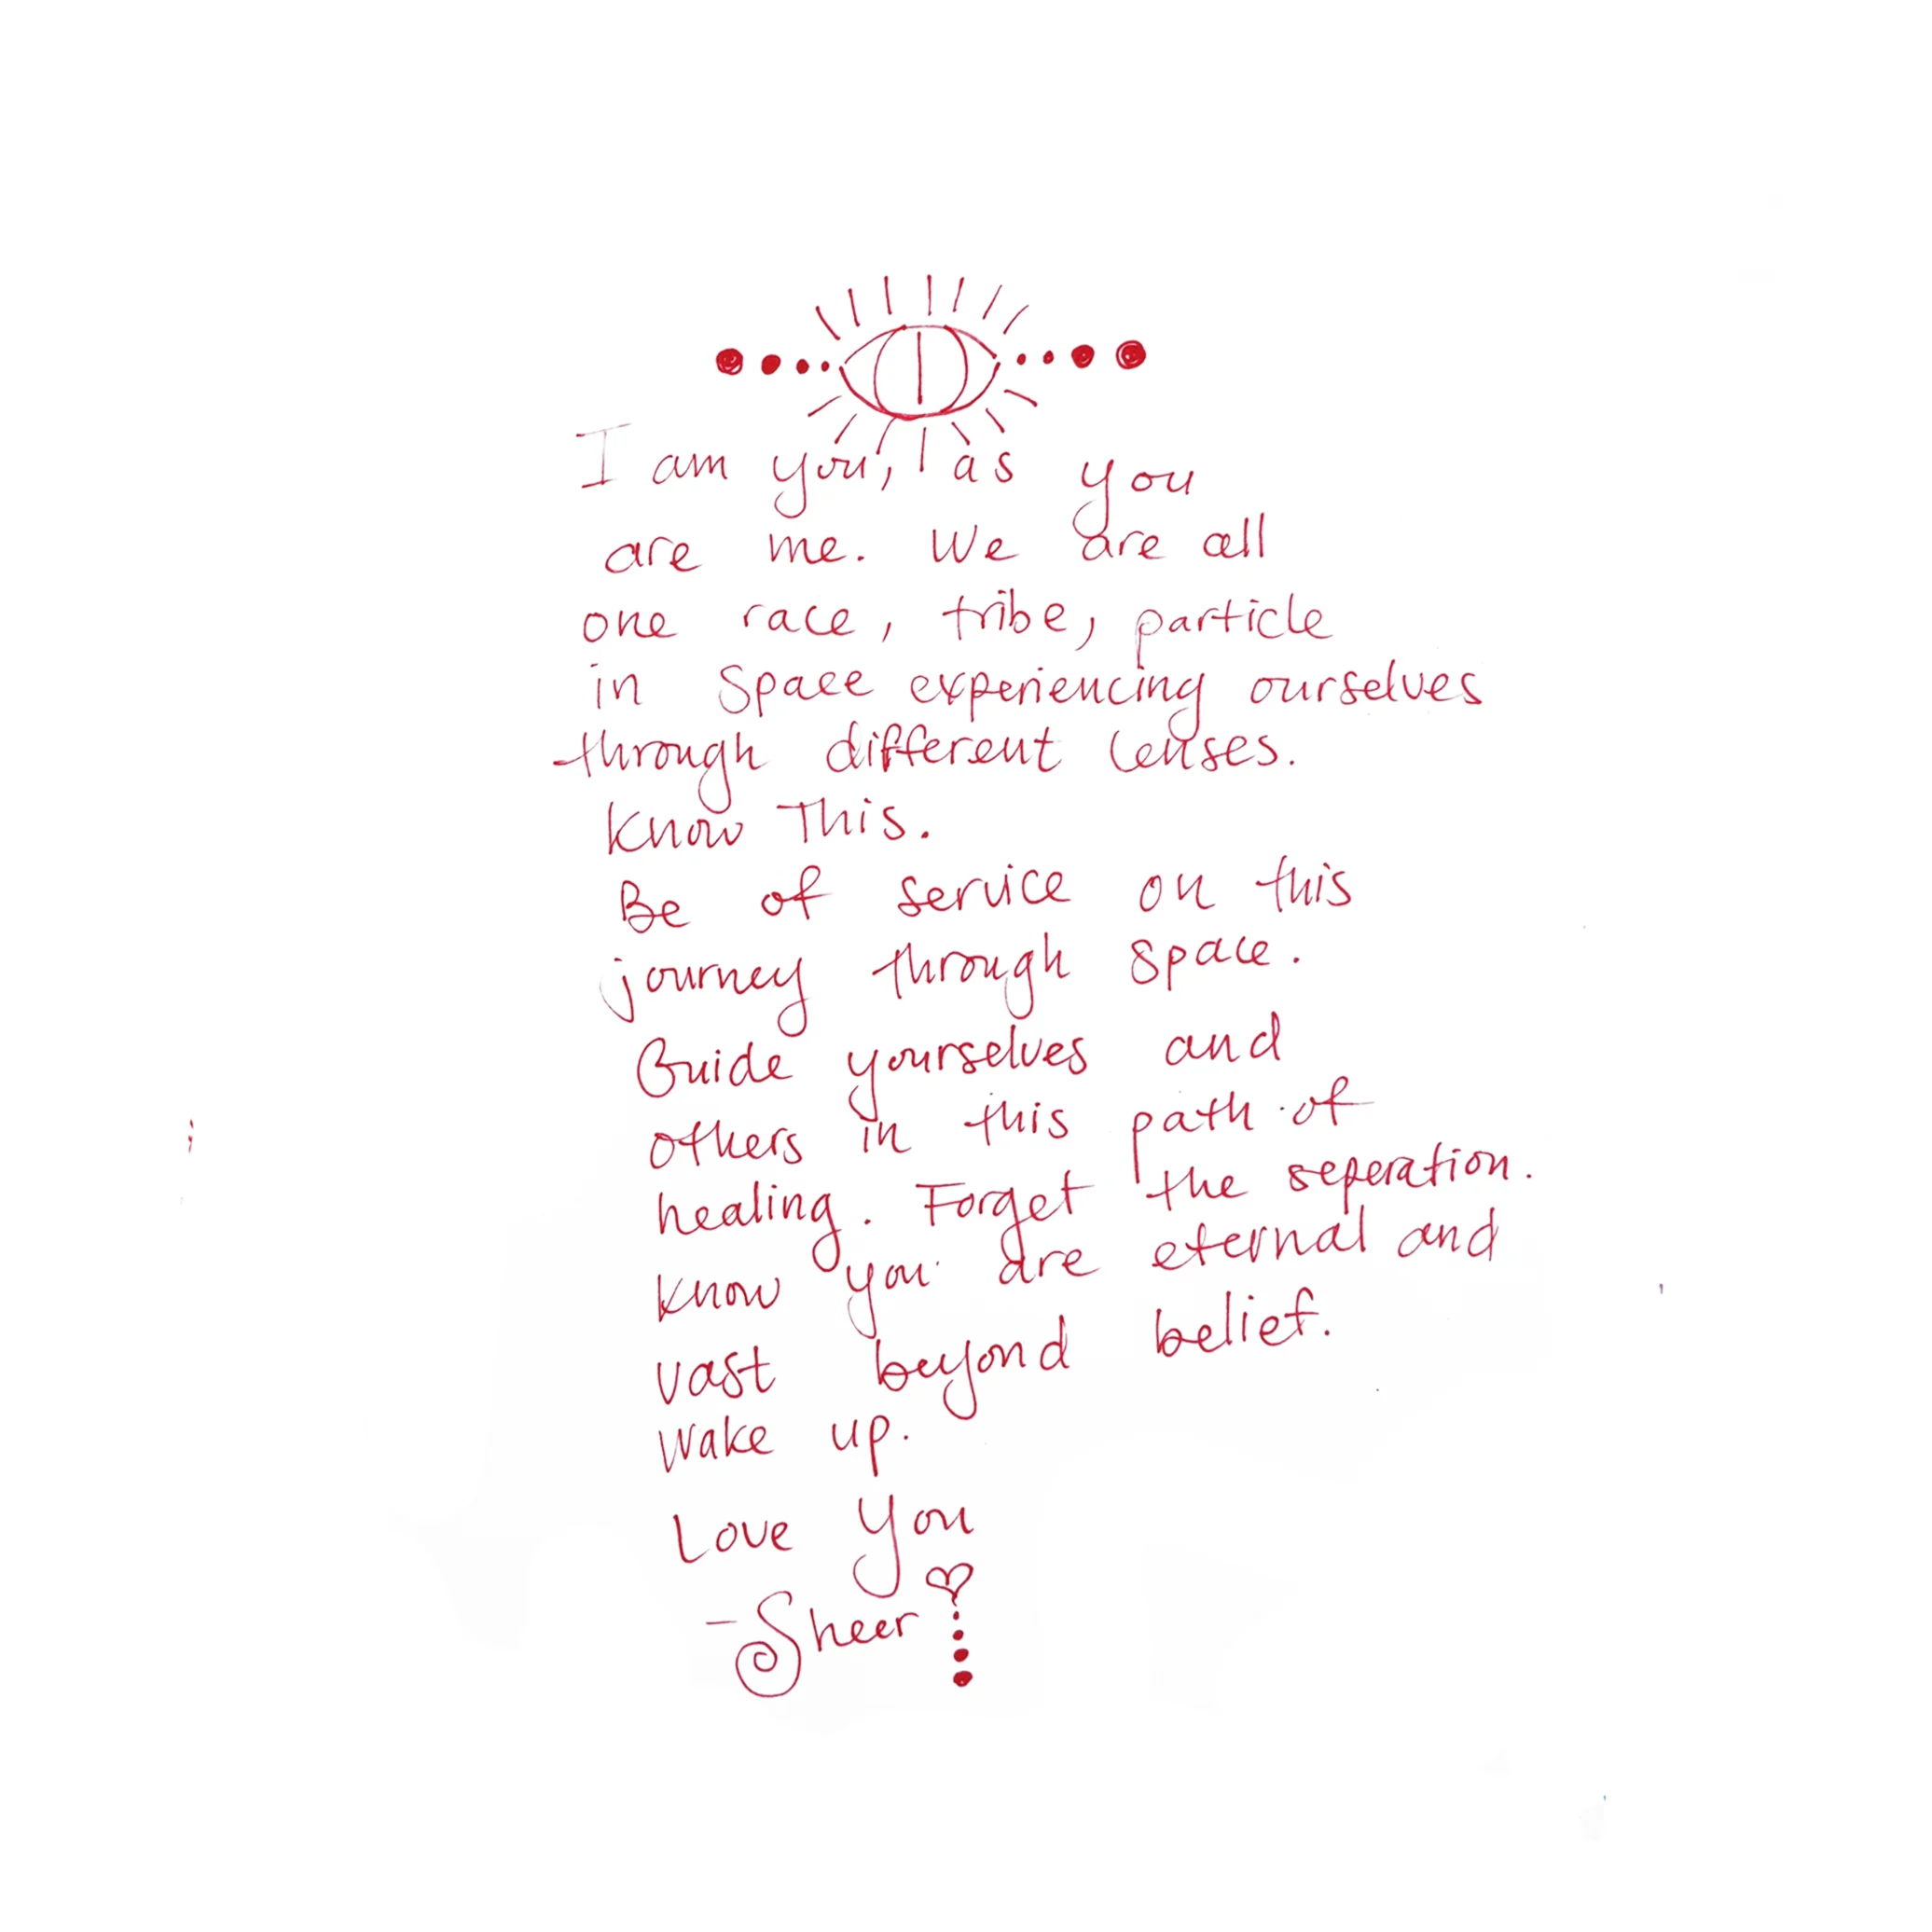 I am you, as you
are me. We are all
one race, tribe, particle
in Space experiencing ourselves
through different lenses.
Know This.
Be of service on this
journey through space.
Guide yourselves and
others in this path of
healing. Forget the seperation.
Know you are eternal and
vast beyond belief.
Wake up.
Love You
-Sheer